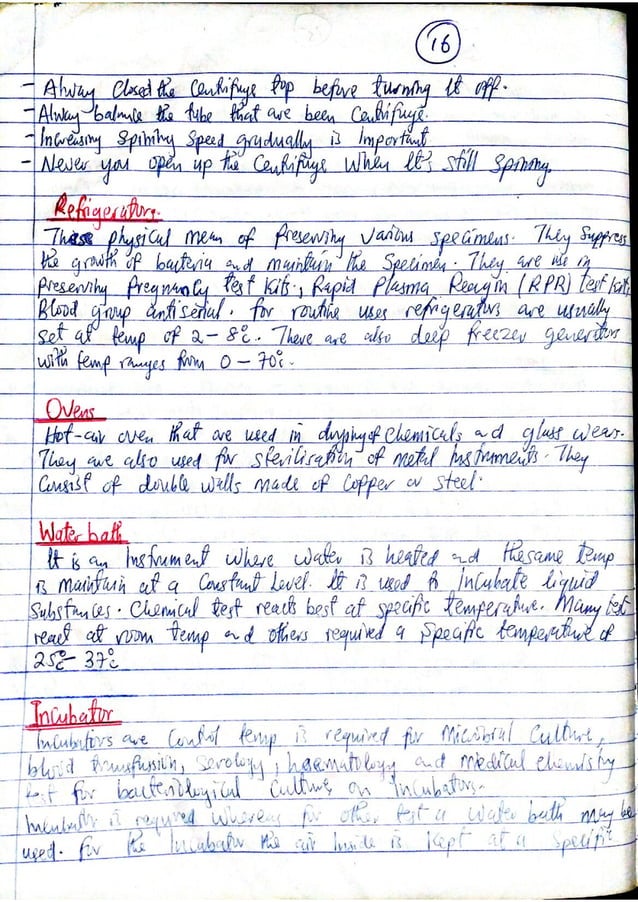 16
- Alway Closed the Centrifuge top before turning it off.
- Alway balance the tube that are been Centrifuge.
- Increasing Spinning Speed gradually is Important
- Never you open up the Centrifuge when It's still Spinning.
Refrigerators.
These physical mean of Preserving Various specimens. They Suppress
the growth of bacteria and maintain the Specimen. They are use in
preserving Pregnancy test kits, Rapid Plasma Reagin (RPR) test kits
Blood group antiserial. for routine uses refrigerators are usually
set at temp of 2-8°c. There are also deep freezer generators
with temp ranges from 0-70°c.
Ovens
Hot-air oven that are used in drying of Chemicals and glass wears.
They are also used for sterilisation of metal Instruments. They
Consist of double walls made of Copper or Steel.
Water bath
It is an Instrument where water is heated and the same temp
is maintain at a Constant Level. It is used to Incubate liquid
Substances. Chemical test reacts best at specific temperature. Many test
react at room temp and others required a Specific temperature of
25°c- 37°c
Incubator
Incubators are Control temp is required for Microbial Culture,
blood transfussion, Serology, haematology and medical chemistry
test for bacteriological Culture an Incubators.
Incubator is required whereas for other test a water bath may be
used. for the Incubator the air Inside is Kept at a Specific